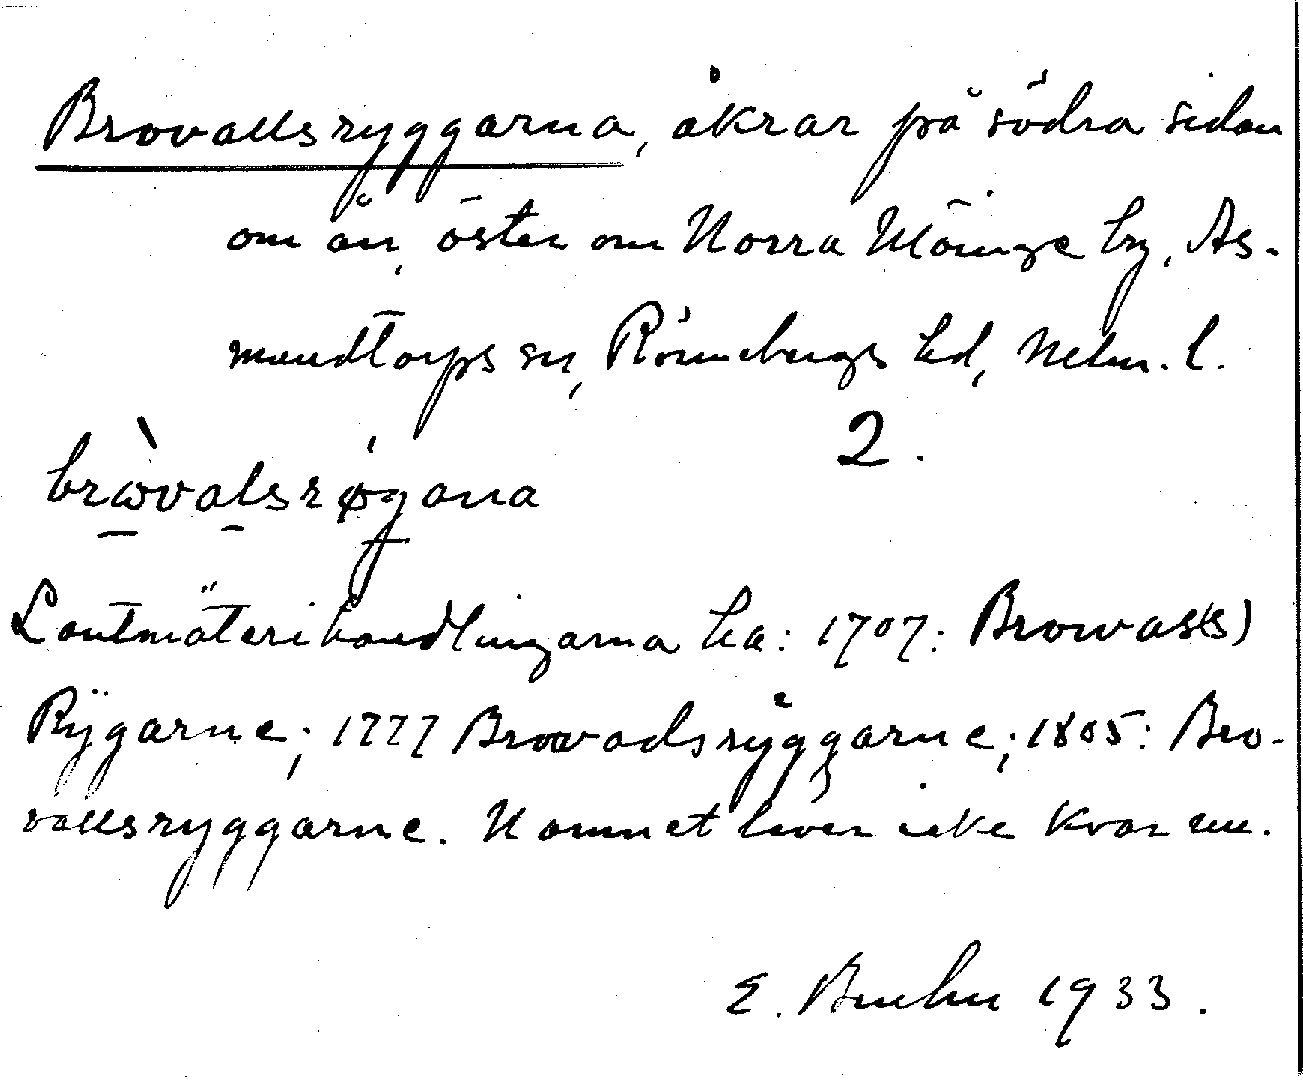 Brovallsryggarna, åkrar på södra sidan
om ån, öster om Norra Möinge by, As-
mundtorps sn, Rönnebergs hd, Mlm. l.
2.
brὼvalsrøgana
Lantmäterihandlingarna ha: 1707: Browas(s)
Rÿgarne; 1777 Browadsryggarne; 1805: Bro-
vallsryggarne. Namnet lever icke kvar nu.
E. 1933.